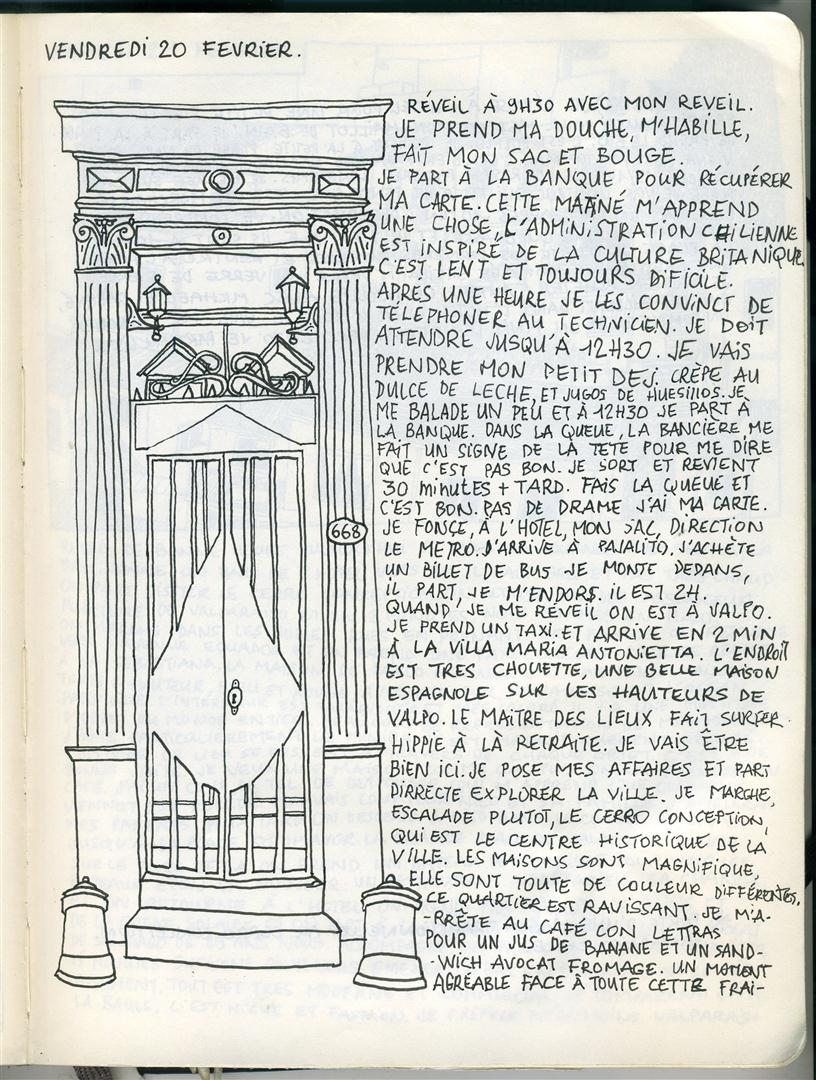 VENDREDI 20 FEVRIER.
RÉVEIL À 9H30 AVEC MON REVEIL.
JE PREND MA DOUCHE, M'HABILLE,
FAIT MON SAC ET BOUGE.
JE PART À LA BANQUE POUR RÉCUPÉRER
MA CARTE. CETTE MATINÉ M'APPREND
UNE CHOSE, L'ADMINISTRATION CHILIENNE
EST INSPIRÉ DE LA CULTURE BRITANIQUE
C'EST LENT ET TOUJOURS DIFICILE.
APRES UNE HEURE JE LES CONVINCT DE
TELEPHONER AU TECHNICIEN. JE DOIT
ATTENDRE JUSQU'À 12H30. JE VAIS
PRENDRE MON PETIT DEJ. CRÈPE AU
DULCE DE LECHE, ET JUGOS DE HUESILLOS. JE
ME BALADE UN PEU ET À 12H30 JE PART À
LA BANQUE. DANS LA QUEUE, LA BANCIÈRE ME
FAIT UN SIGNE DE LA TETE POUR ME DIRE
QUE C'EST PAS BON. JE SORT ET REVIENT
30 minutes + TARD. FAIS LA QUEUE ET
C'EST BON. PAS DE DRAME J'AI MA CARTE.
JE FONCE, À L'HOTEL, MON SAC, DIRECTION
LE METRO. J'ARRIVE À PAJALITO, J'ACHÈTE
UN BILLET DE BUS JE MONTE DEDANS,
IL PART, JE M'ENDORS. IL EST 2H.
QUAND JE ME RÉVEIL ON EST À VALPO.
JE PREND UN TAXI. ET ARRIVE EN 2 MIN
À LA VILLA MARIA ANTONIETTA L'ENDROIT
EST TRES CHOUETTE, UNE BELLE MAISON
ESPAGNOLE SUR LES HAUTEURS DE
VALPO. LE MAÎTRE DES LIEUX FAIT SURFER
HIPPIE À LÀ RETRAITE. JE VAIS ÊTRE
BIEN ICI. JE POSE MES AFFAIRES ET PART
DIRRECTE EXPLORER LA VILLE. JE MARCHE,
ESCALADE PLUTOT, LE CERRO CONCEPTION,
QUI EST LE CENTRE HISTORIQUE DE LA
VILLE. LES MAISONS SONT MAGNIFIQUE,
ELLE SONT TOUTE DE COULEUR DIFFÉRENTES.
CE QUARTIER EST RAVISSANT. JE M'A-
-RRÊTE AU CAFÉ CON LETTRAS
POUR UN JUS DE BANANE ET UN SAND-
-WICH AVOCAT FROMAGE. UN MOMENT
AGRÉABLE FACE À TOUTE CETTE FRAI-
668